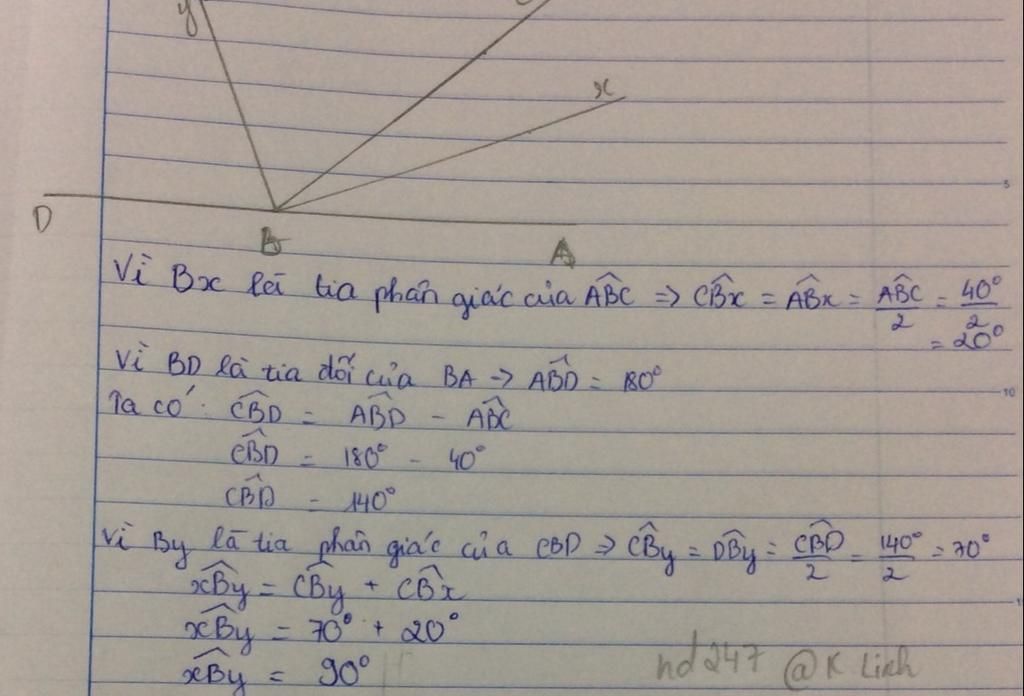 y
x
5
D
B
A
Vì Bx là tia phân giác của ABC^ => CBx^ = ABx^ = ABC^/2 = 40°/2
= 20°
Vì BD là tia đối của BA -> ABD^ = 180°
10
Ta có: CBD^ = ABD^ - ABC^
CBD^ = 180° - 40°
CBD^ = 140°
Vì By là tia phân giác của CBD => CBy^ = DBy^ = CBD^/2 = 140°/2 = 70°
xBy^ = CBy^ + CBx^
xBy^ = 70° + 20°
xBy^ = 90°
nd247 @K Linh